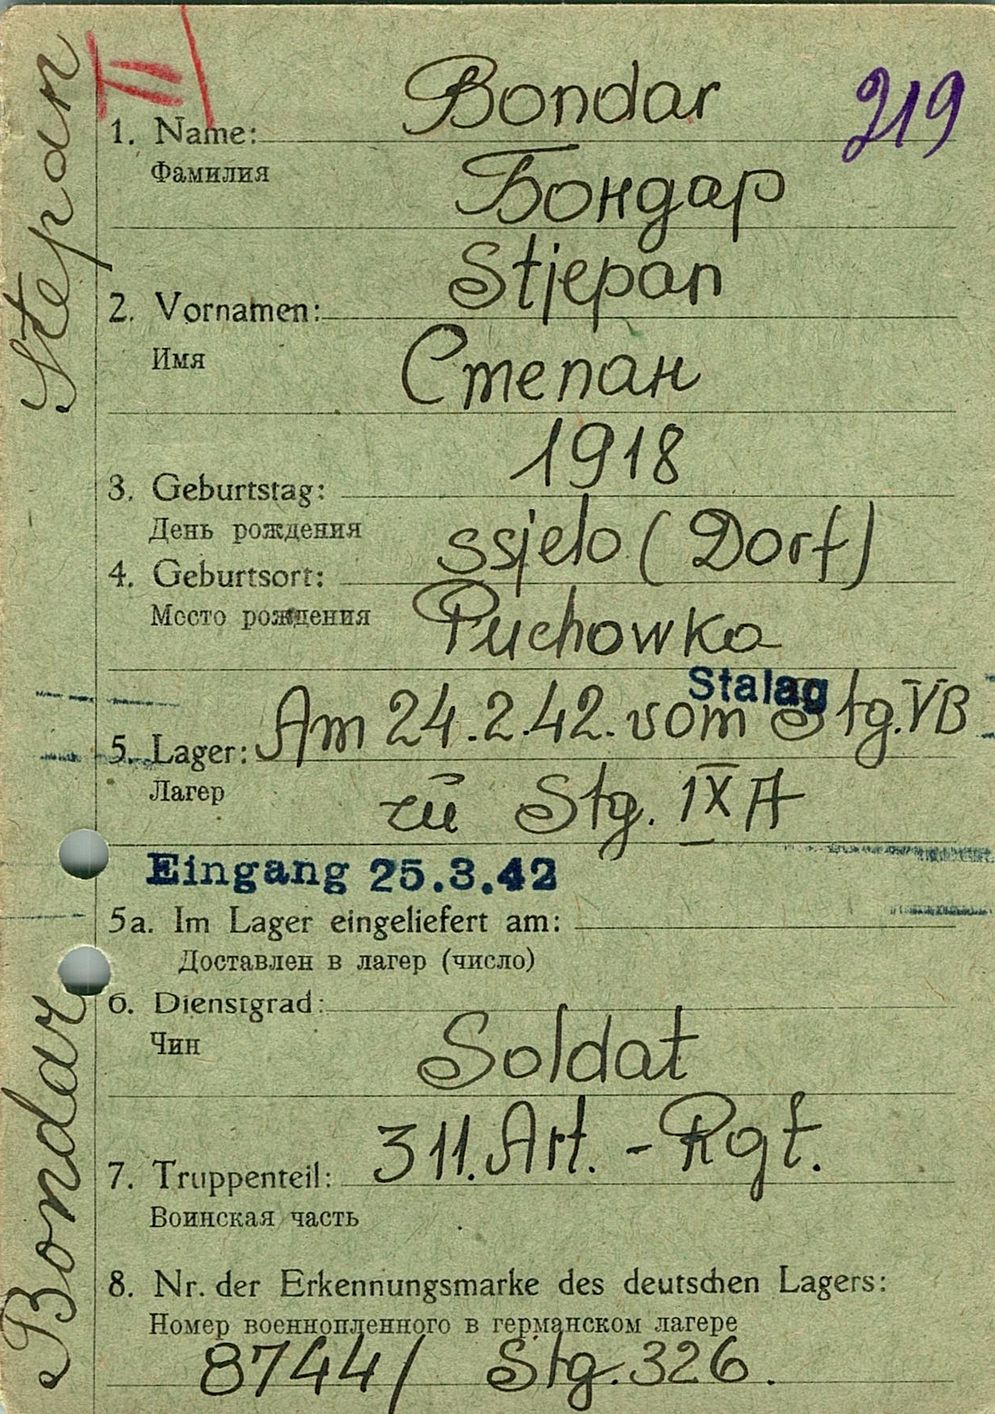 Stepan
II
Bondar
219
1. Name:
Фамилия
Бондар
Stjepan
2. Vornamen:
Имя
Степан
1918
3. Geburtstag:
День рождения
ssjelo (Dorf)
4. Geburtsort:
Место рождения
Puchowka
Stalag
5. Lager: Am 24.2.42. vom Stg. VB
Лагер
zu Stg. IX A
Eingang 25.3.42
5a. Im Lager eingeliefert am:
Доставлен в лагер (число)
6. Dienstgrad:
Чин
Soldat
7. Truppenteil: 311. Art.-Rgt.
Воинская часть
8. Nr. der Erkennungsmarke des deutschen Lagers:
Номер военнопленного в германском лагере
8744/ Stg. 326.
Bondar